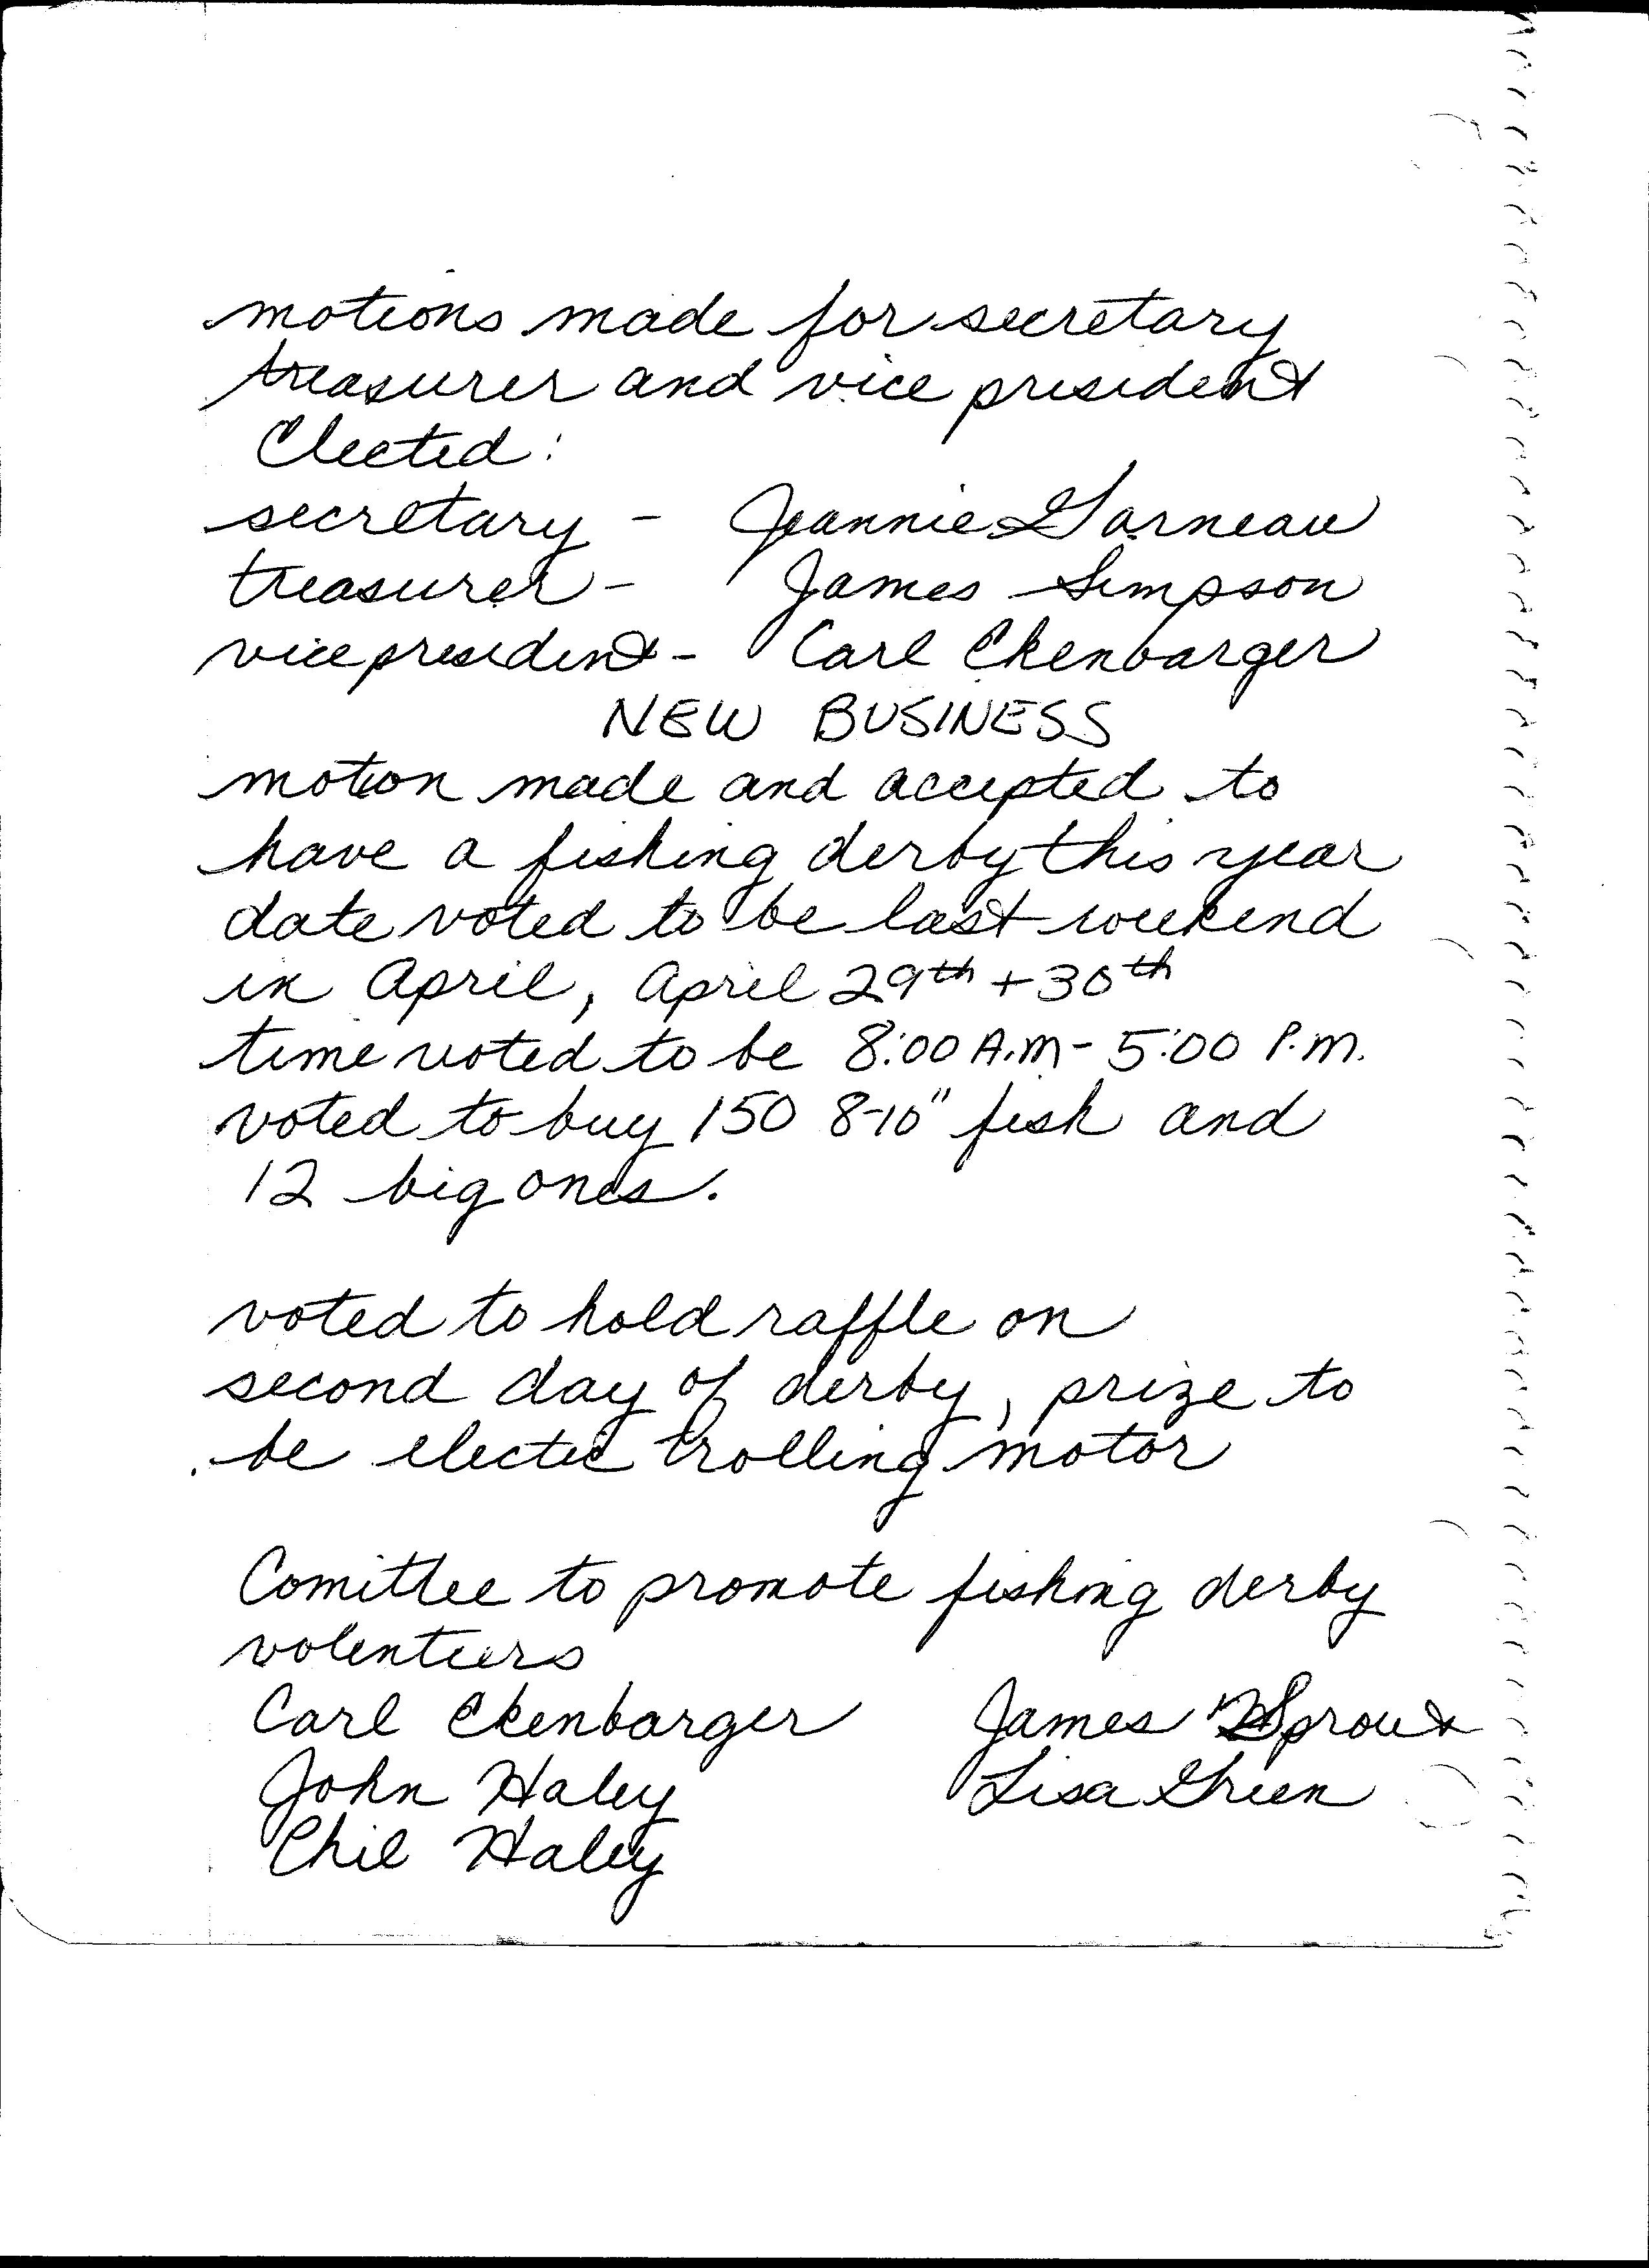 motions made for secretary
treasurer and vice president
Elected:
secretary - Jeannie Garneau
treasurer - James Simpson
vice president - Carl Ekenbarger
NEW BUSINESS
motion made and accepted to
have a fishing derby this year
date voted to be last weekend
in April, April 29th + 30th
time voted to be 8:00 A.M - 5:00 P.M.
voted to buy 150 8-10" fish and
12 big ones.
voted to hold raffle on
second day of derby, prize to
be electric trolling motor
Comittee to promote fishing derby
volenteers
Carl Ekenbarger James Sprout
John Haley Lisa Green
Phil Haley